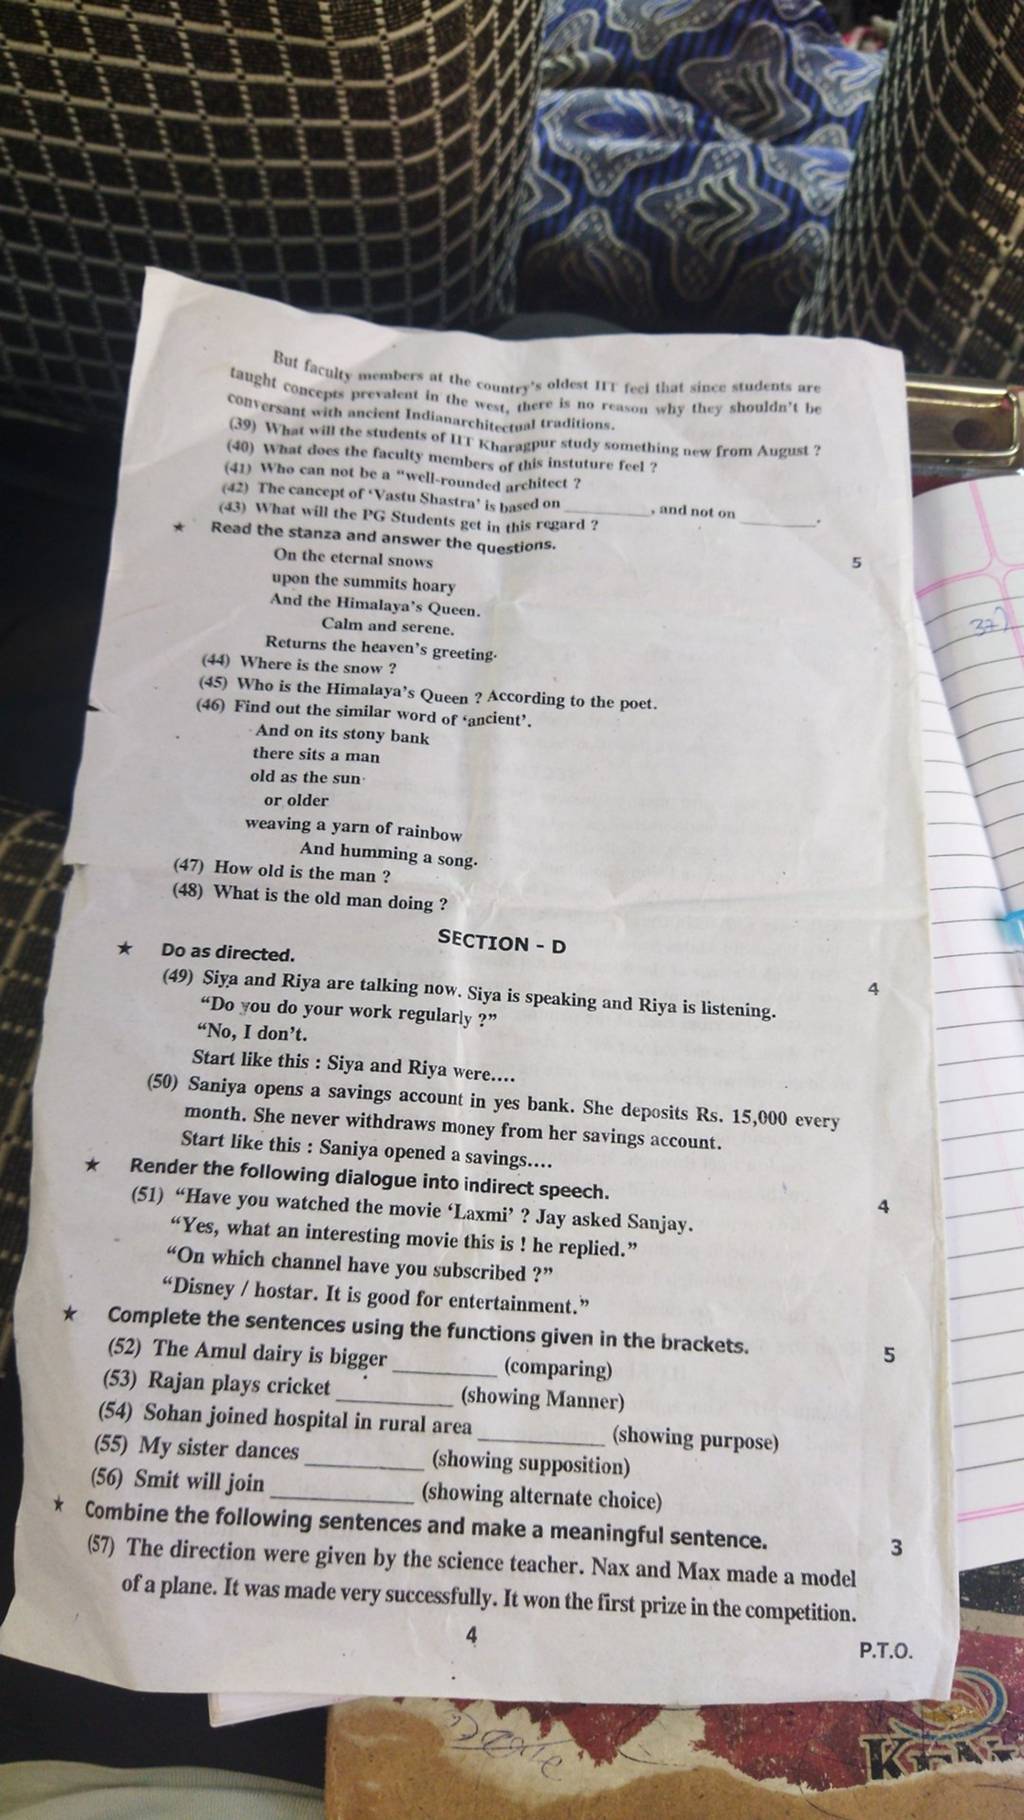 But faculty members at the country's oldest IIT feel that since students are
taught concepts prevalent in the west, there is no reason why they shouldn't be
conversant with ancient Indianarchitectual traditions.
(39) What will the students of IIT Kharagpur study something new from August ?
(40) What does the faculty members of this instuture feel ?
(41) Who can not be a "well-rounded architect ?
(42) The cancept of 'Vastu Shastra' is based on __________, and not on __________.
(43) What will the PG Students get in this regard ?
★ Read the stanza and answer the questions. 5
On the eternal snows
upon the summits hoary
And the Himalaya's Queen.
Calm and serene.
Returns the heaven's greeting.
(44) Where is the snow ?
(45) Who is the Himalaya's Queen ? According to the poet.
(46) Find out the similar word of 'ancient'.
And on its stony bank
there sits a man
old as the sun
or older
weaving a yarn of rainbow
And humming a song.
(47) How old is the man ?
(48) What is the old man doing ?
SECTION - D
★ Do as directed. 4
(49) Siya and Riya are talking now. Siya is speaking and Riya is listening.
"Do you do your work regularly ?"
"No, I don't.
Start like this : Siya and Riya were....
(50) Saniya opens a savings account in yes bank. She deposits Rs. 15,000 every
month. She never withdraws money from her savings account.
Start like this : Saniya opened a savings....
★ Render the following dialogue into indirect speech. 4
(51) "Have you watched the movie 'Laxmi' ? Jay asked Sanjay.
"Yes, what an interesting movie this is ! he replied."
"On which channel have you subscribed ?"
"Disney / hostar. It is good for entertainment."
★ Complete the sentences using the functions given in the brackets. 5
(52) The Amul dairy is bigger __________ (comparing)
(53) Rajan plays cricket __________ (showing Manner)
(54) Sohan joined hospital in rural area __________ (showing purpose)
(55) My sister dances __________ (showing supposition)
(56) Smit will join __________ (showing alternate choice)
★ Combine the following sentences and make a meaningful sentence. 3
(57) The direction were given by the science teacher. Nax and Max made a model
of a plane. It was made very successfully. It won the first prize in the competition.
4
P.T.O.
37)